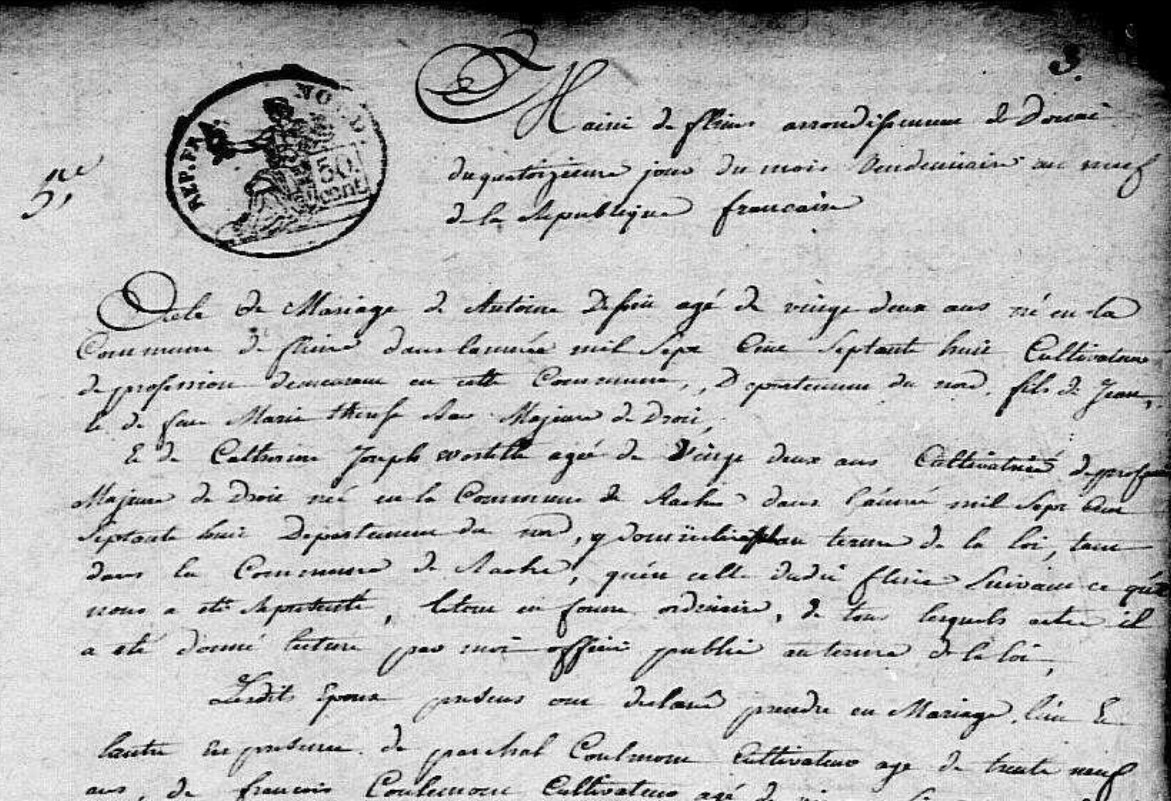 3.
REP. FRA NORD.
50 cent
5e
Mairie de flines arrondissement de Douai
du quatorzieme jour du mois Vendemiaire an neuf
de la Republique francaise
Acte de Mariage de Antoine agé de vingt deux ans né en la
Commune de flines dans lannée mil Sept Cent Septante huit Cultivateur
de profession demeurant en cette Commune, Departement du nord, fils de Jean,
et de feue Marie therese Majeur de Droit,
Et de Catherine Joseph agée de Vingt deux ans Cultivatrice de profession
Majeure de Droit née en la Commune de Rache dans l'année mil Sept Cent
Septante huit Departement du nord, y domiciliée au terme de la loi, tant
dans la Commune de Rache, qu'en celle dudit flines Suivant ce qui
nous a eté Representé, letout en forme ordinaire, de tous lesquels actes il
a eté donné lecture par moi officier public au terme de la loi,
Lesdits Epoux presens ont declaré prendre en Mariage, lun Et
lautre En presence de parchal Coulmont Cultivateur age de trente neuf
ans, de francois Coulemont Cultivateur agé de